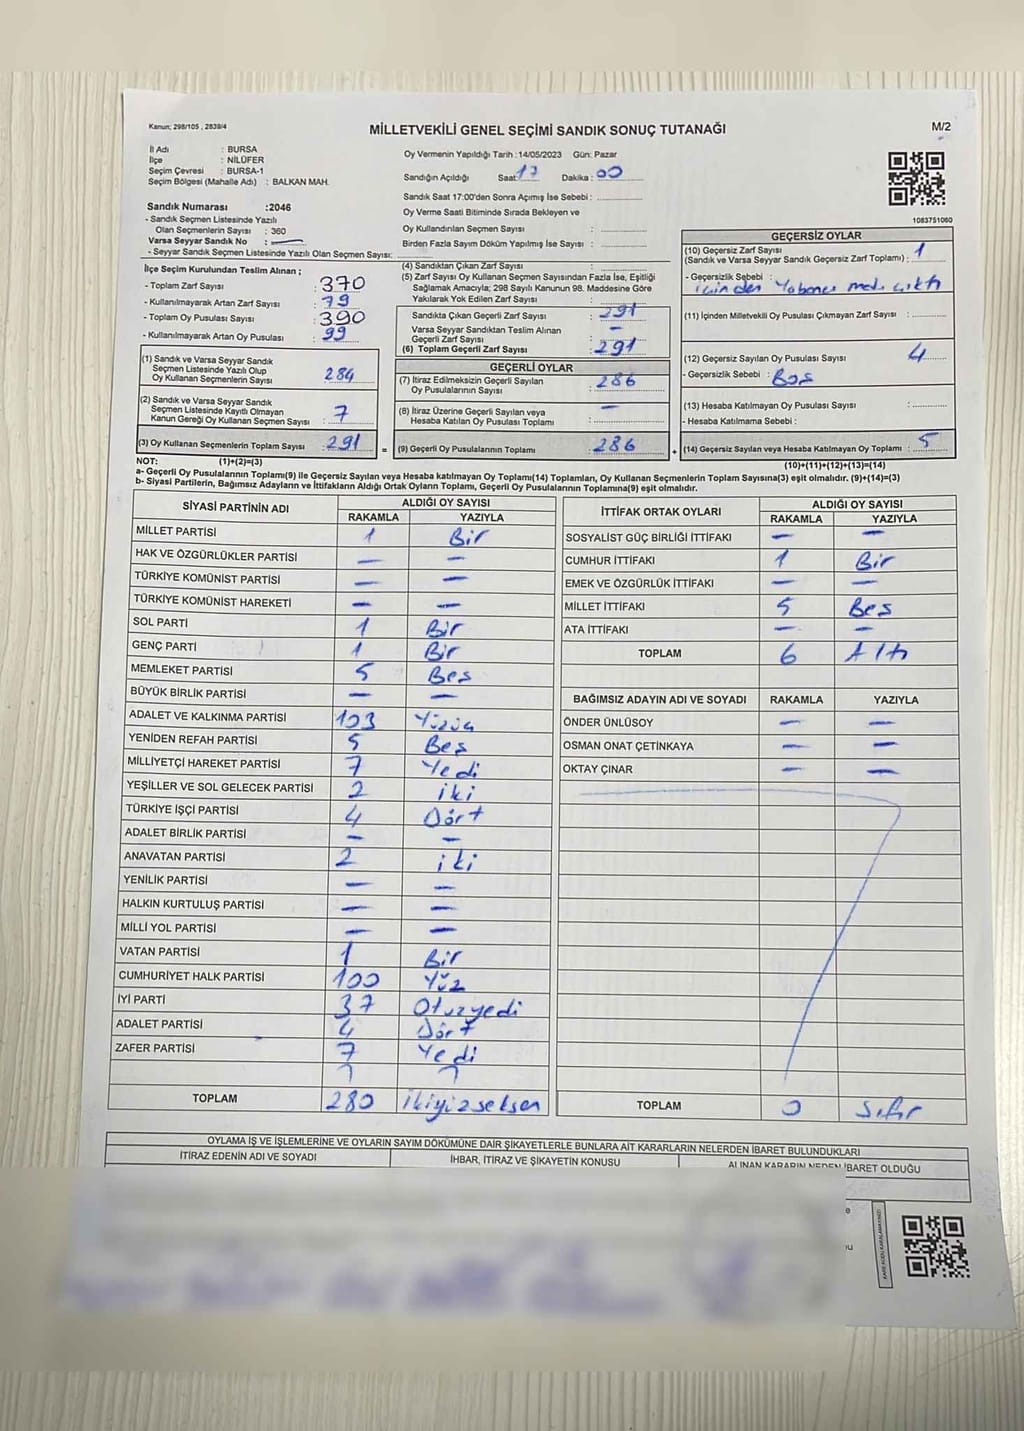 Kanun; 298/105 , 2839/4
MİLLETVEKİLİ GENEL SEÇİMİ SANDIK SONUÇ TUTANAĞI
M/2
İl Adı : BURSA
İlçe : NİLÜFER
Seçim Çevresi : BURSA-1
Seçim Bölgesi (Mahalle Adı) : BALKAN MAH.
Oy Vermenin Yapıldığı Tarih :14/05/2023 Gün: Pazar
Sandığın Açıldığı Saat: 17 Dakika : 00
Sandık Saat 17:00'den Sonra Açımış İse Sebebi :
Oy Verme Saati Bitiminde Sırada Bekleyen ve
Oy Kullandırılan Seçmen Sayısı :
Birden Fazla Sayım Döküm Yapılmış İse Sayısı :
1083751060
Sandık Numarası :2046
- Sandık Seçmen Listesinde Yazılı
Olan Seçmenlerin Sayısı : 360
Varsa Seyyar Sandık No : —
- Seyyar Sandık Seçmen Listesinde Yazılı Olan Seçmen Sayısı:
İlçe Seçim Kurulundan Teslim Alınan ;
- Toplam Zarf Sayısı : 370
- Kullanılmayarak Artan Zarf Sayısı : 79
- Toplam Oy Pusulası Sayısı : 390
- Kullanılmayarak Artan Oy Pusulası : 99
(1) Sandık ve Varsa Seyyar Sandık
Seçmen Listesinde Yazılı Olup
Oy Kullanan Seçmenlerin Sayısı : 284
(2) Sandık ve Varsa Seyyar Sandık
Seçmen Listesinde Kayıtlı Olmayan
Kanun Gereği Oy Kullanan Seçmen Sayısı : 7
(3) Oy Kullanan Seçmenlerin Toplam Sayısı : 291 =
(4) Sandıktan Çıkan Zarf Sayısı :
(5) Zarf Sayısı Oy Kullanan Seçmen Sayısından Fazla İse, Eşitliği
Sağlamak Amacıyla; 298 Sayılı Kanunun 98. Maddesine Göre
Yakılarak Yok Edilen Zarf Sayısı :
Sandıkta Çıkan Geçerli Zarf Sayısı : 291
Varsa Seyyar Sandıktan Teslim Alınan
Geçerli Zarf Sayısı : —
(6) Toplam Geçerli Zarf Sayısı : 291
GEÇERLİ OYLAR
(7) İtiraz Edilmeksizin Geçerli Sayılan
Oy Pusulalarının Sayısı : 286
(8) İtiraz Üzerine Geçerli Sayılan veya
Hesaba Katılan Oy Pusulası Toplamı : —
(9) Geçerli Oy Pusulalarının Toplamı : 286 +
GEÇERSİZ OYLAR
(10) Geçersiz Zarf Sayısı
(Sandık ve Varsa Seyyar Sandık Geçersiz Zarf Toplamı) : 1
- Geçersizlik Sebebi :
içinden Yabancı mad. çıktı
(11) İçinden Milletvekili Oy Pusulası Çıkmayan Zarf Sayısı :
(12) Geçersiz Sayılan Oy Pusulası Sayısı : 4
- Geçersizlik Sebebi : Boş
(13) Hesaba Katılmayan Oy Pusulası Sayısı :
- Hesaba Katılmama Sebebi :
(14) Geçersiz Sayılan veya Hesaba Katılmayan Oy Toplamı : 5
NOT: (1)+(2)=(3)
(10)+(11)+(12)+(13)=(14)
a- Geçerli Oy Pusulalarının Toplamı(9) ile Geçersiz Sayılan veya Hesaba katılmayan Oy Toplamı(14) Toplamları, Oy Kullanan Seçmenlerin Toplam Sayısına(3) eşit olmalıdır. (9)+(14)=(3)
b- Siyasi Partilerin, Bağımsız Adayların ve İttifakların Aldığı Ortak Oyların Toplamı, Geçerli Oy Pusulalarının Toplamına(9) eşit olmalıdır.
SİYASİ PARTİNİN ADI ALDIĞI OY SAYISI
RAKAMLA YAZIYLA
MİLLET PARTİSİ 1 Bir
HAK VE ÖZGÜRLÜKLER PARTİSİ — —
TÜRKİYE KOMÜNİST PARTİSİ — —
TÜRKİYE KOMÜNİST HAREKETİ — —
SOL PARTİ 1 Bir
GENÇ PARTİ 1 Bir
MEMLEKET PARTİSİ 5 Beş
BÜYÜK BİRLİK PARTİSİ — —
ADALET VE KALKINMA PARTİSİ 103 Yüzüç
YENİDEN REFAH PARTİSİ 5 Beş
MİLLİYETÇİ HAREKET PARTİSİ 7 Yedi
YEŞİLLER VE SOL GELECEK PARTİSİ 2 iki
TÜRKİYE İŞÇİ PARTİSİ 4 Dört
ADALET BİRLİK PARTİSİ — —
ANAVATAN PARTİSİ 2 iki
YENİLİK PARTİSİ — —
HALKIN KURTULUŞ PARTİSİ — —
MİLLİ YOL PARTİSİ — —
VATAN PARTİSİ 1 Bir
CUMHURİYET HALK PARTİSİ 100 Yüz
İYİ PARTİ 37 Otuzyedi
ADALET PARTİSİ 4 Dört
ZAFER PARTİSİ 7 Yedi
TOPLAM 280 ikiyüzseksen
İTTİFAK ORTAK OYLARI ALDIĞI OY SAYISI
RAKAMLA YAZIYLA
SOSYALİST GÜÇ BİRLİĞİ İTTİFAKI — —
CUMHUR İTTİFAKI 1 Bir
EMEK VE ÖZGÜRLÜK İTTİFAKI — —
MİLLET İTTİFAKI 5 Beş
ATA İTTİFAKI — —
TOPLAM 6 Altı
BAĞIMSIZ ADAYIN ADI VE SOYADI RAKAMLA YAZIYLA
ÖNDER ÜNLÜSOY — —
OSMAN ONAT ÇETİNKAYA — —
OKTAY ÇINAR — —
TOPLAM 0 Sıfır
OYLAMA İŞ VE İŞLEMLERİNE VE OYLARIN SAYIM DÖKÜMÜNE DAİR ŞİKAYETLERLE BUNLARA AİT KARARLARIN NELERDEN İBARET BULUNDUKLARI
İTİRAZ EDENİN ADI VE SOYADI İHBAR, İTİRAZ VE ŞİKAYETİN KONUSU ALINAN KARARIN NEDEN İBARET OLDUĞU